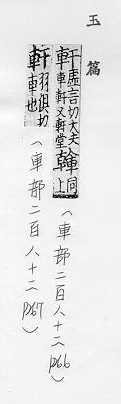 玉篇
虛言切大夫
車軒又軒堂
同上
(車部二百八十二 p66)
羽俱切
車也
(車部二百八十二 p67)